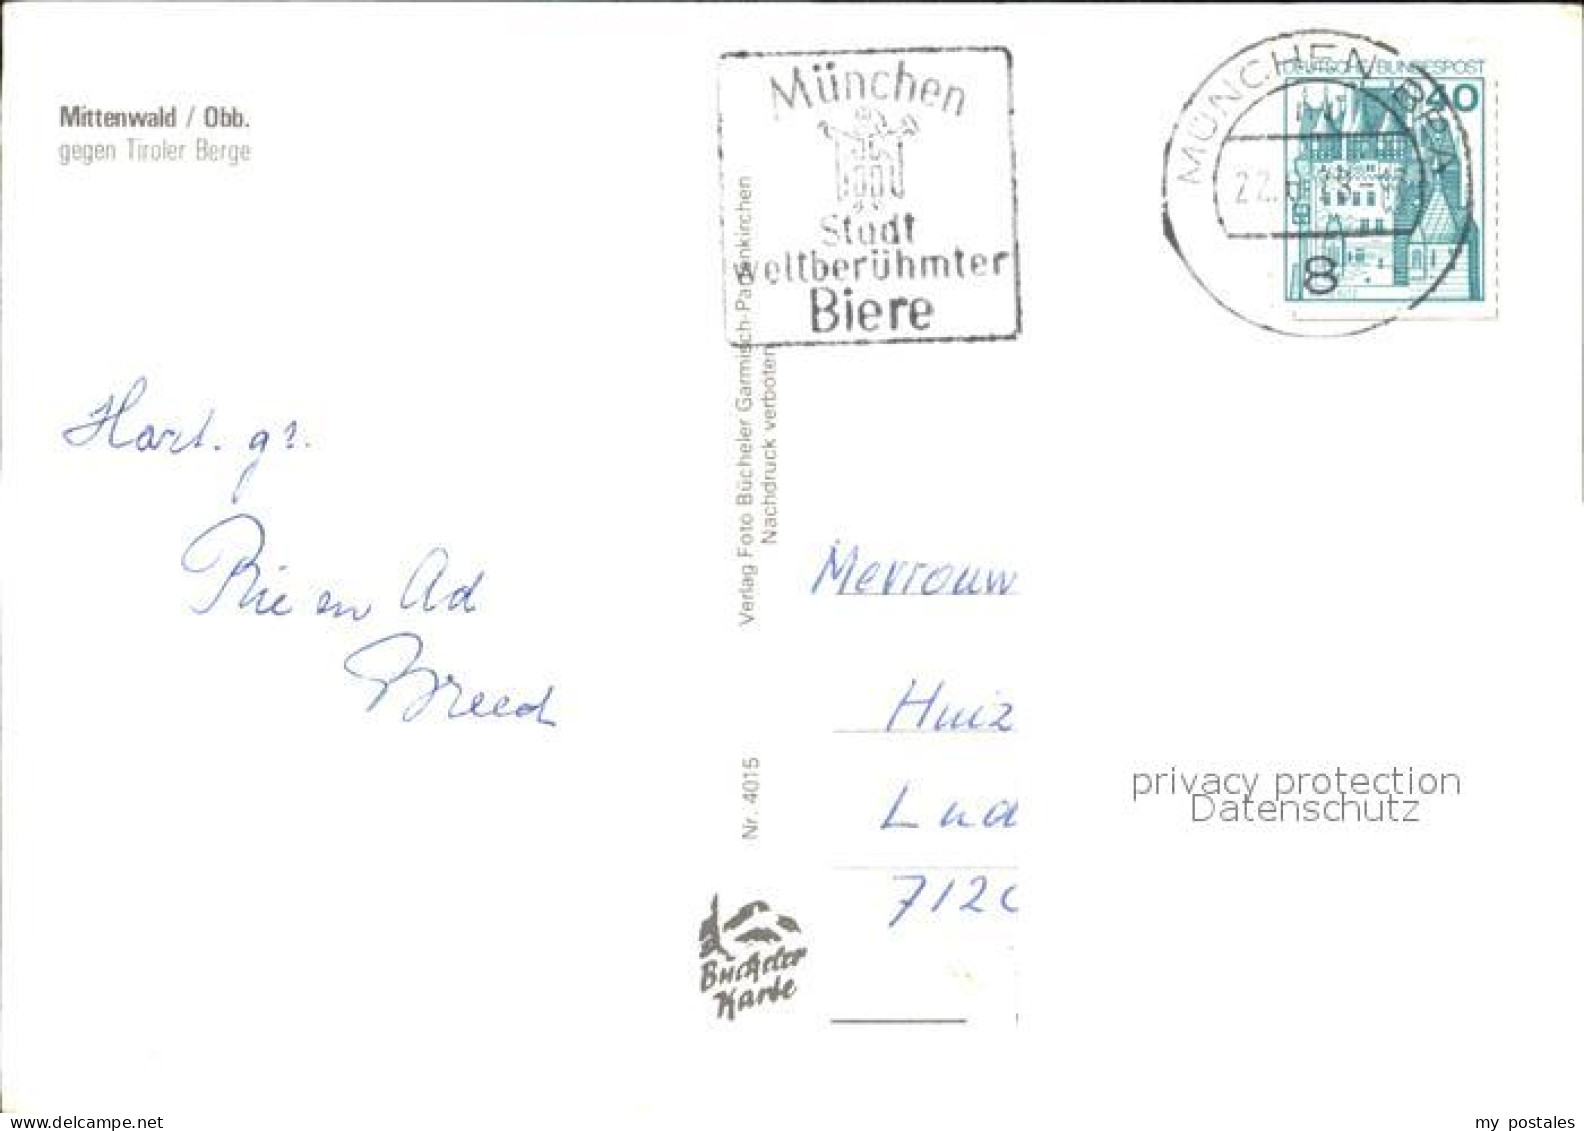 Mittenwald / Obb.
gegen Tiroler Berge
München
Stadt
weltberühmter
Biere
MÜNCHEN BPA
22.
8
DEUTSCHE BUNDESPOST
40
Verlag Foto Bücheler Garmisch-Partenkirchen
Nachdruck verboten
Nr. 4015
Hart. gr.
Rie en Ad
Breed
Mevrouw
Huiz
Lud
712
privacy protection
Datenschutz
Bücheler
Karte
my postales